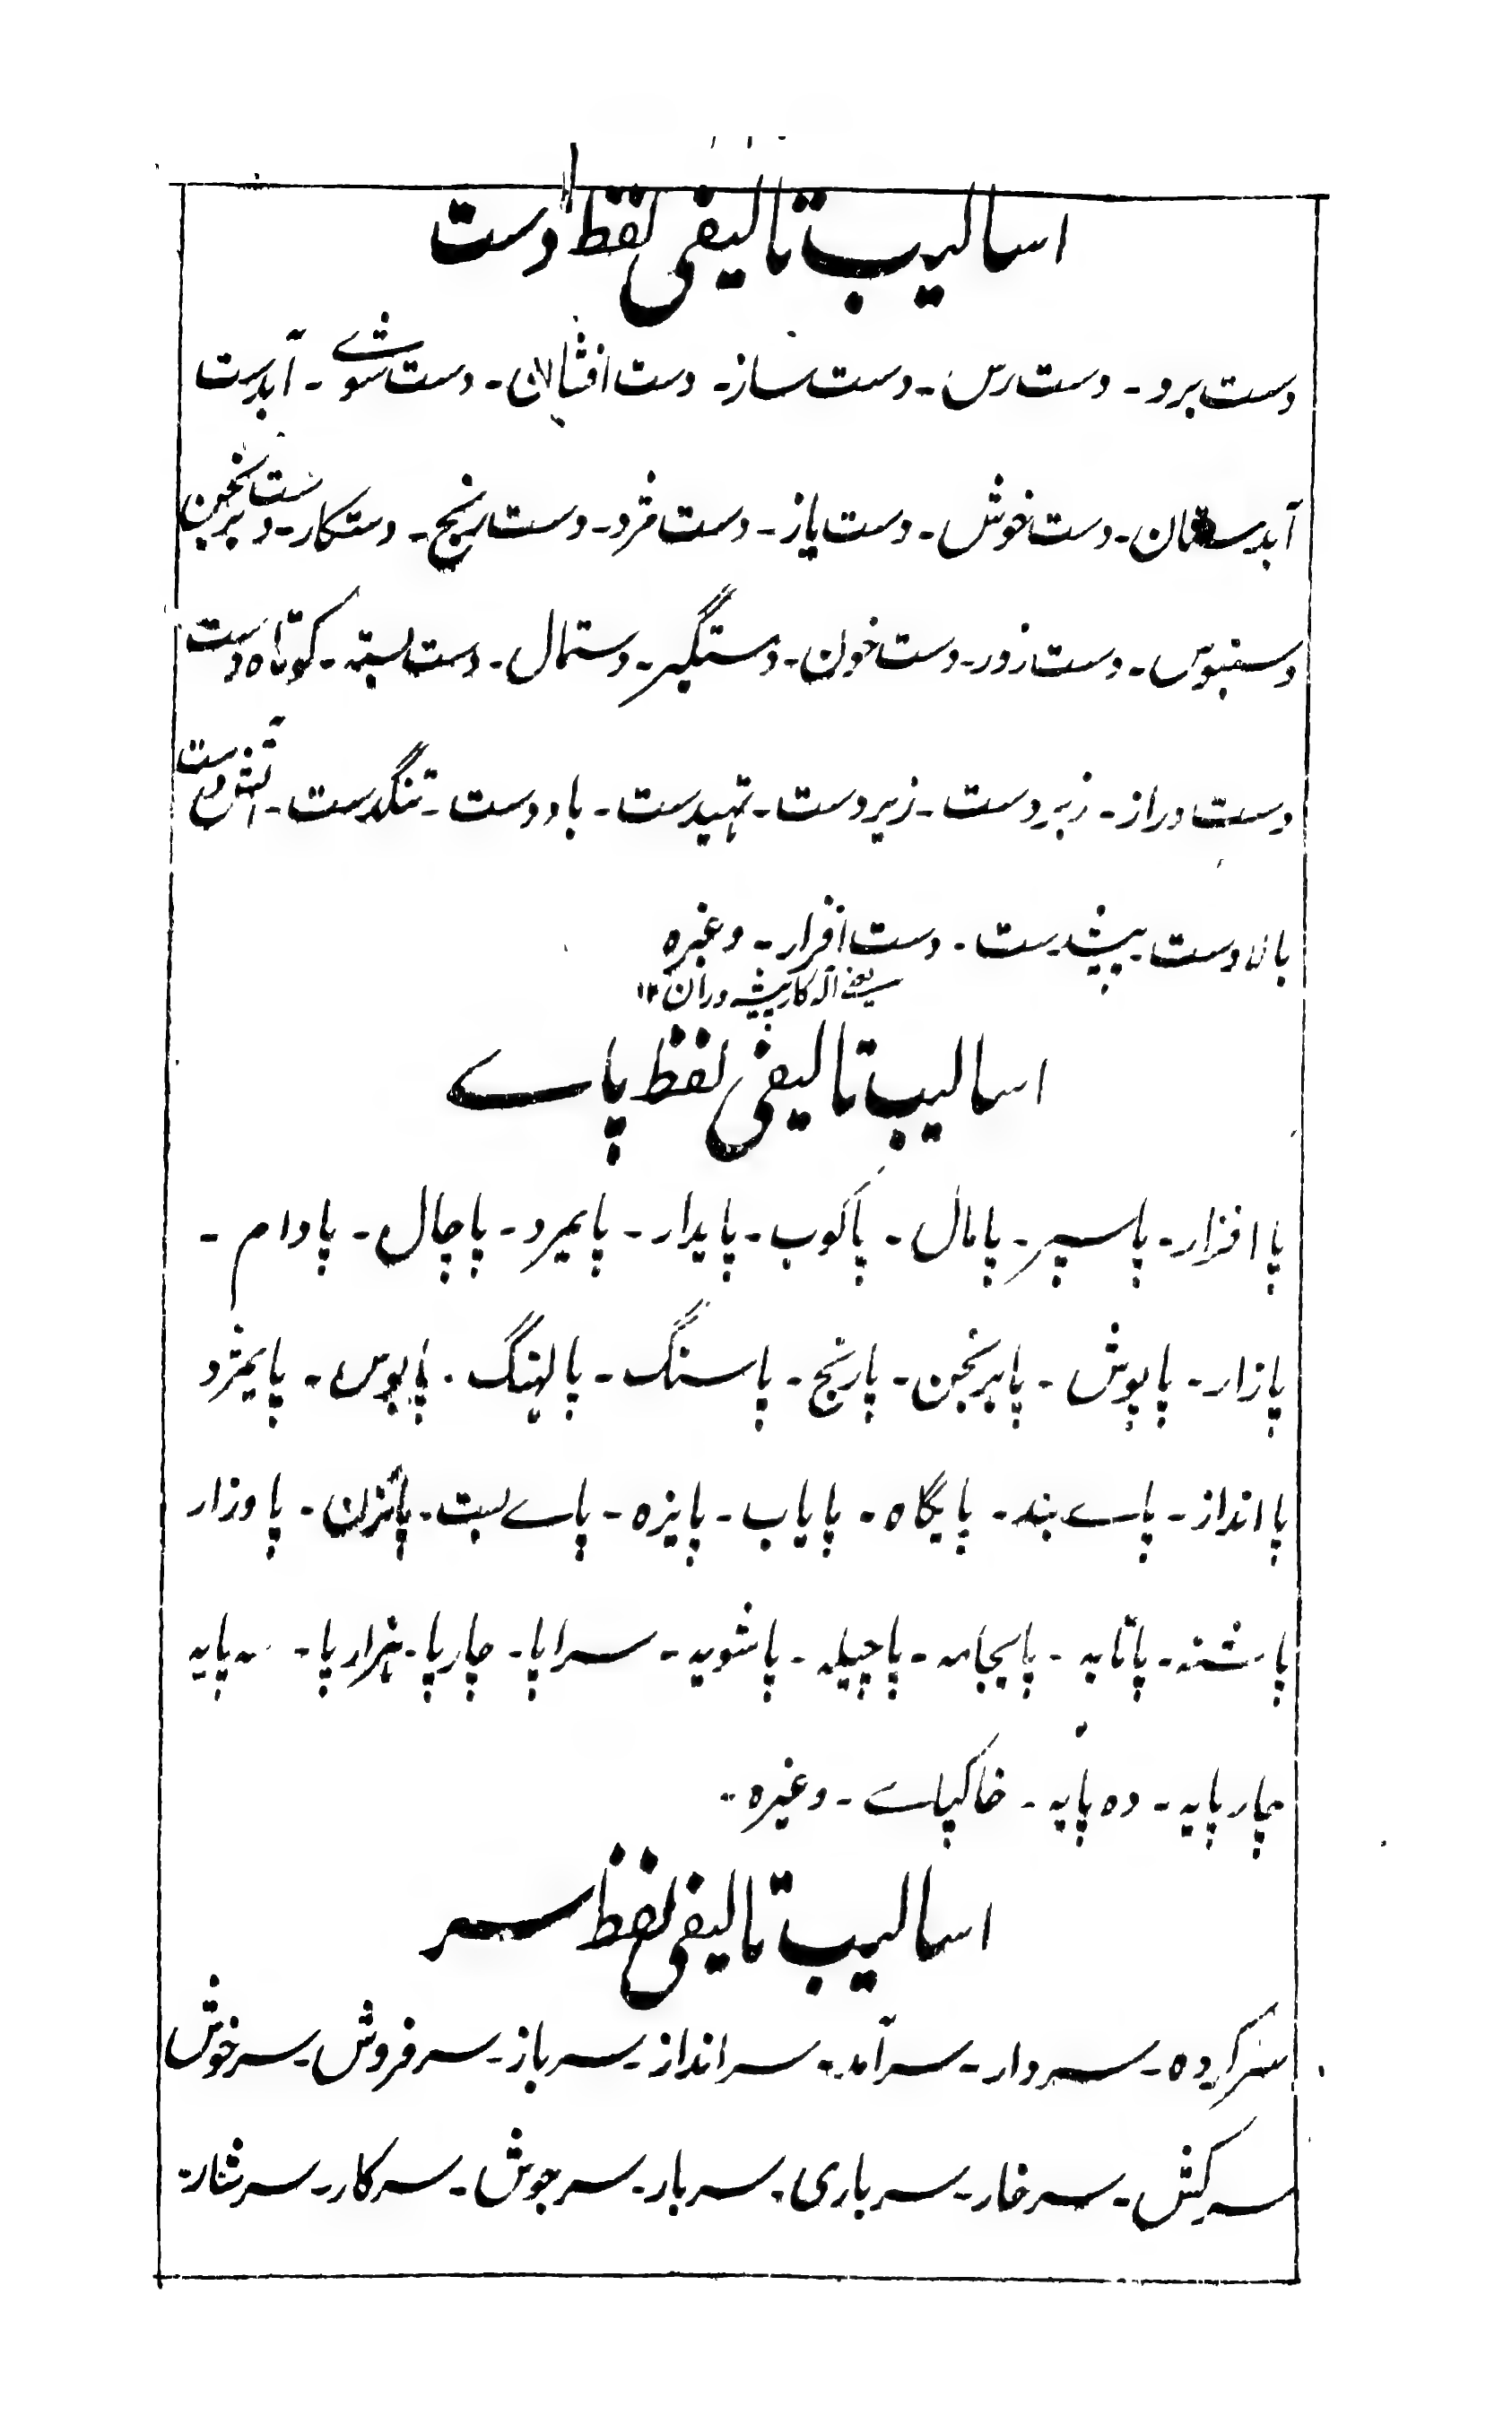 اسالیب تالیفی لفظ دست
دست برد - دست رس - دست ساز - دست افشان - دست شوے - آبدست
آبدستان - دست خوش - دست یاز - دست مزد - دست رنج - دستکار - دست برنجن
دستنبوس - دست زور - دست خون - دستگیر - دستمال - دست بستہ - کوتاہ دست
دست دراز - زبردست - زیردست - تہیدست - باددست - تنگدست - آتش دست
بالادست - پیشدست - دست افزار - وغیرہ
یعنے آلہ کار پیشہ وران ۱۲
اسالیب تالیفی لفظ پاے
پا افزار - پاسپر - پامال - پاکوب - پایدار - پایمرد - پاچال - پادام -
پازار - پاپوش - پابرنجن - پارنج - پاسنگ - پالہنگ - پابوس - پایمزد
پا انداز - پاے بند - پایگاہ - پایاب - پایزہ - پاے بست - پاوزار
پاشنہ - پاتابہ - پایجامہ - پاچپلہ - پاشویہ - سراپا - چارپا - ہزارپا - سہ پایہ
چارپایہ - دہ پایہ - خاکپاے - وغیرہ -
اسالیب تالیفی لفظ سر
سرکردہ - سردار - سرآمد - سرانداز - سرباز - سرفروش - سرخوش
سرکش - سرخار - سرباری - سربار - سرجوش - سرکار - سرشار -